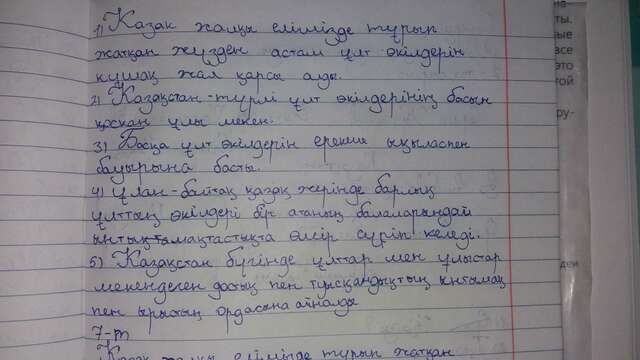 1) Казак жалқы елімізде тұрып
жатқан жүзден астам ұлт өкілдерін
құшақ жая қарсы алды.
2) Қазақстан - түрлі ұлт өкілдерінің басын
қосқан ұлы мекен.
3) Басқа ұлт өкілдерін ерекше ықыласпен
бауырына басты.
4) Ұлан-байтақ қазақ жерінде барлық
ұлттың өкілдері бір атаның балаларындай
ынтықтамақтастықта өмір сүріп келеді.
5) Қазақстан бүгінде ұлттар мен ұлыстар
мекендеген достық пен туысқандықтың ынтымақ
пен ырыстың ордасына айналды
7-т
Казак жалқы елімізде тұрып жатқан
ты.
ые
все
это
той
ру-
дей